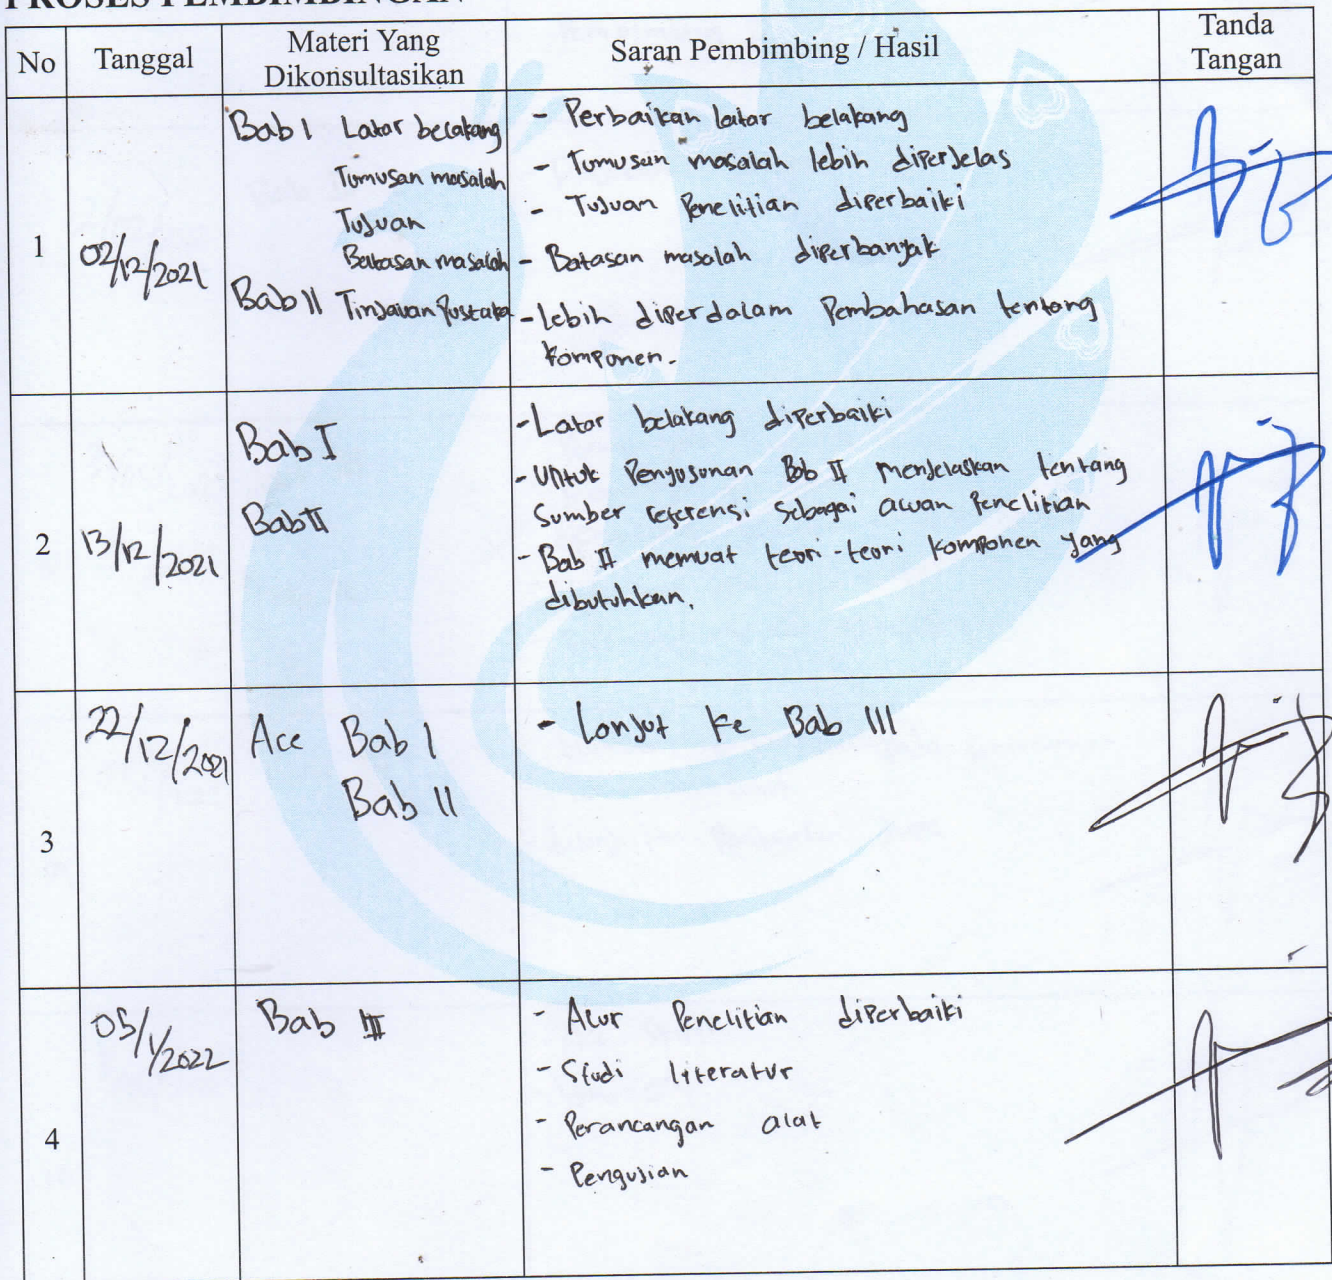 PROSES PEMBIMBINGAN
No
Tanggal
Materi Yang
Dikonsultasikan
Saran Pembimbing / Hasil
Tanda
Tangan
1
02/12/2021
Bab I Latar belakang
Tumusan masalah
Tujuan
Batasan masalah
Bab II Tinjauan Pustaka
- Perbaikan latar belakang
- Tumusan masalah lebih diperjelas
- Tujuan Penelitian diperbaiki
- Batasan masalah diperbanyak
- lebih diperdalam Pembahasan tentang
komponen.
2
13/12/2021
Bab I
Bab II
- Latar belakang diperbaiki
- Untuk Penyusunan Bab II menjelaskan tentang
Sumber referensi sebagai acuan Penelitian
- Bab II memuat teori-teori komponen yang
dibutuhkan.
3
22/12/2021
Acc Bab I
Bab II
- Lanjut ke Bab III
4
05/1/2022
Bab III
- Alur Penelitian diperbaiki
- Studi literatur
- Perancangan alat
- Pengujian